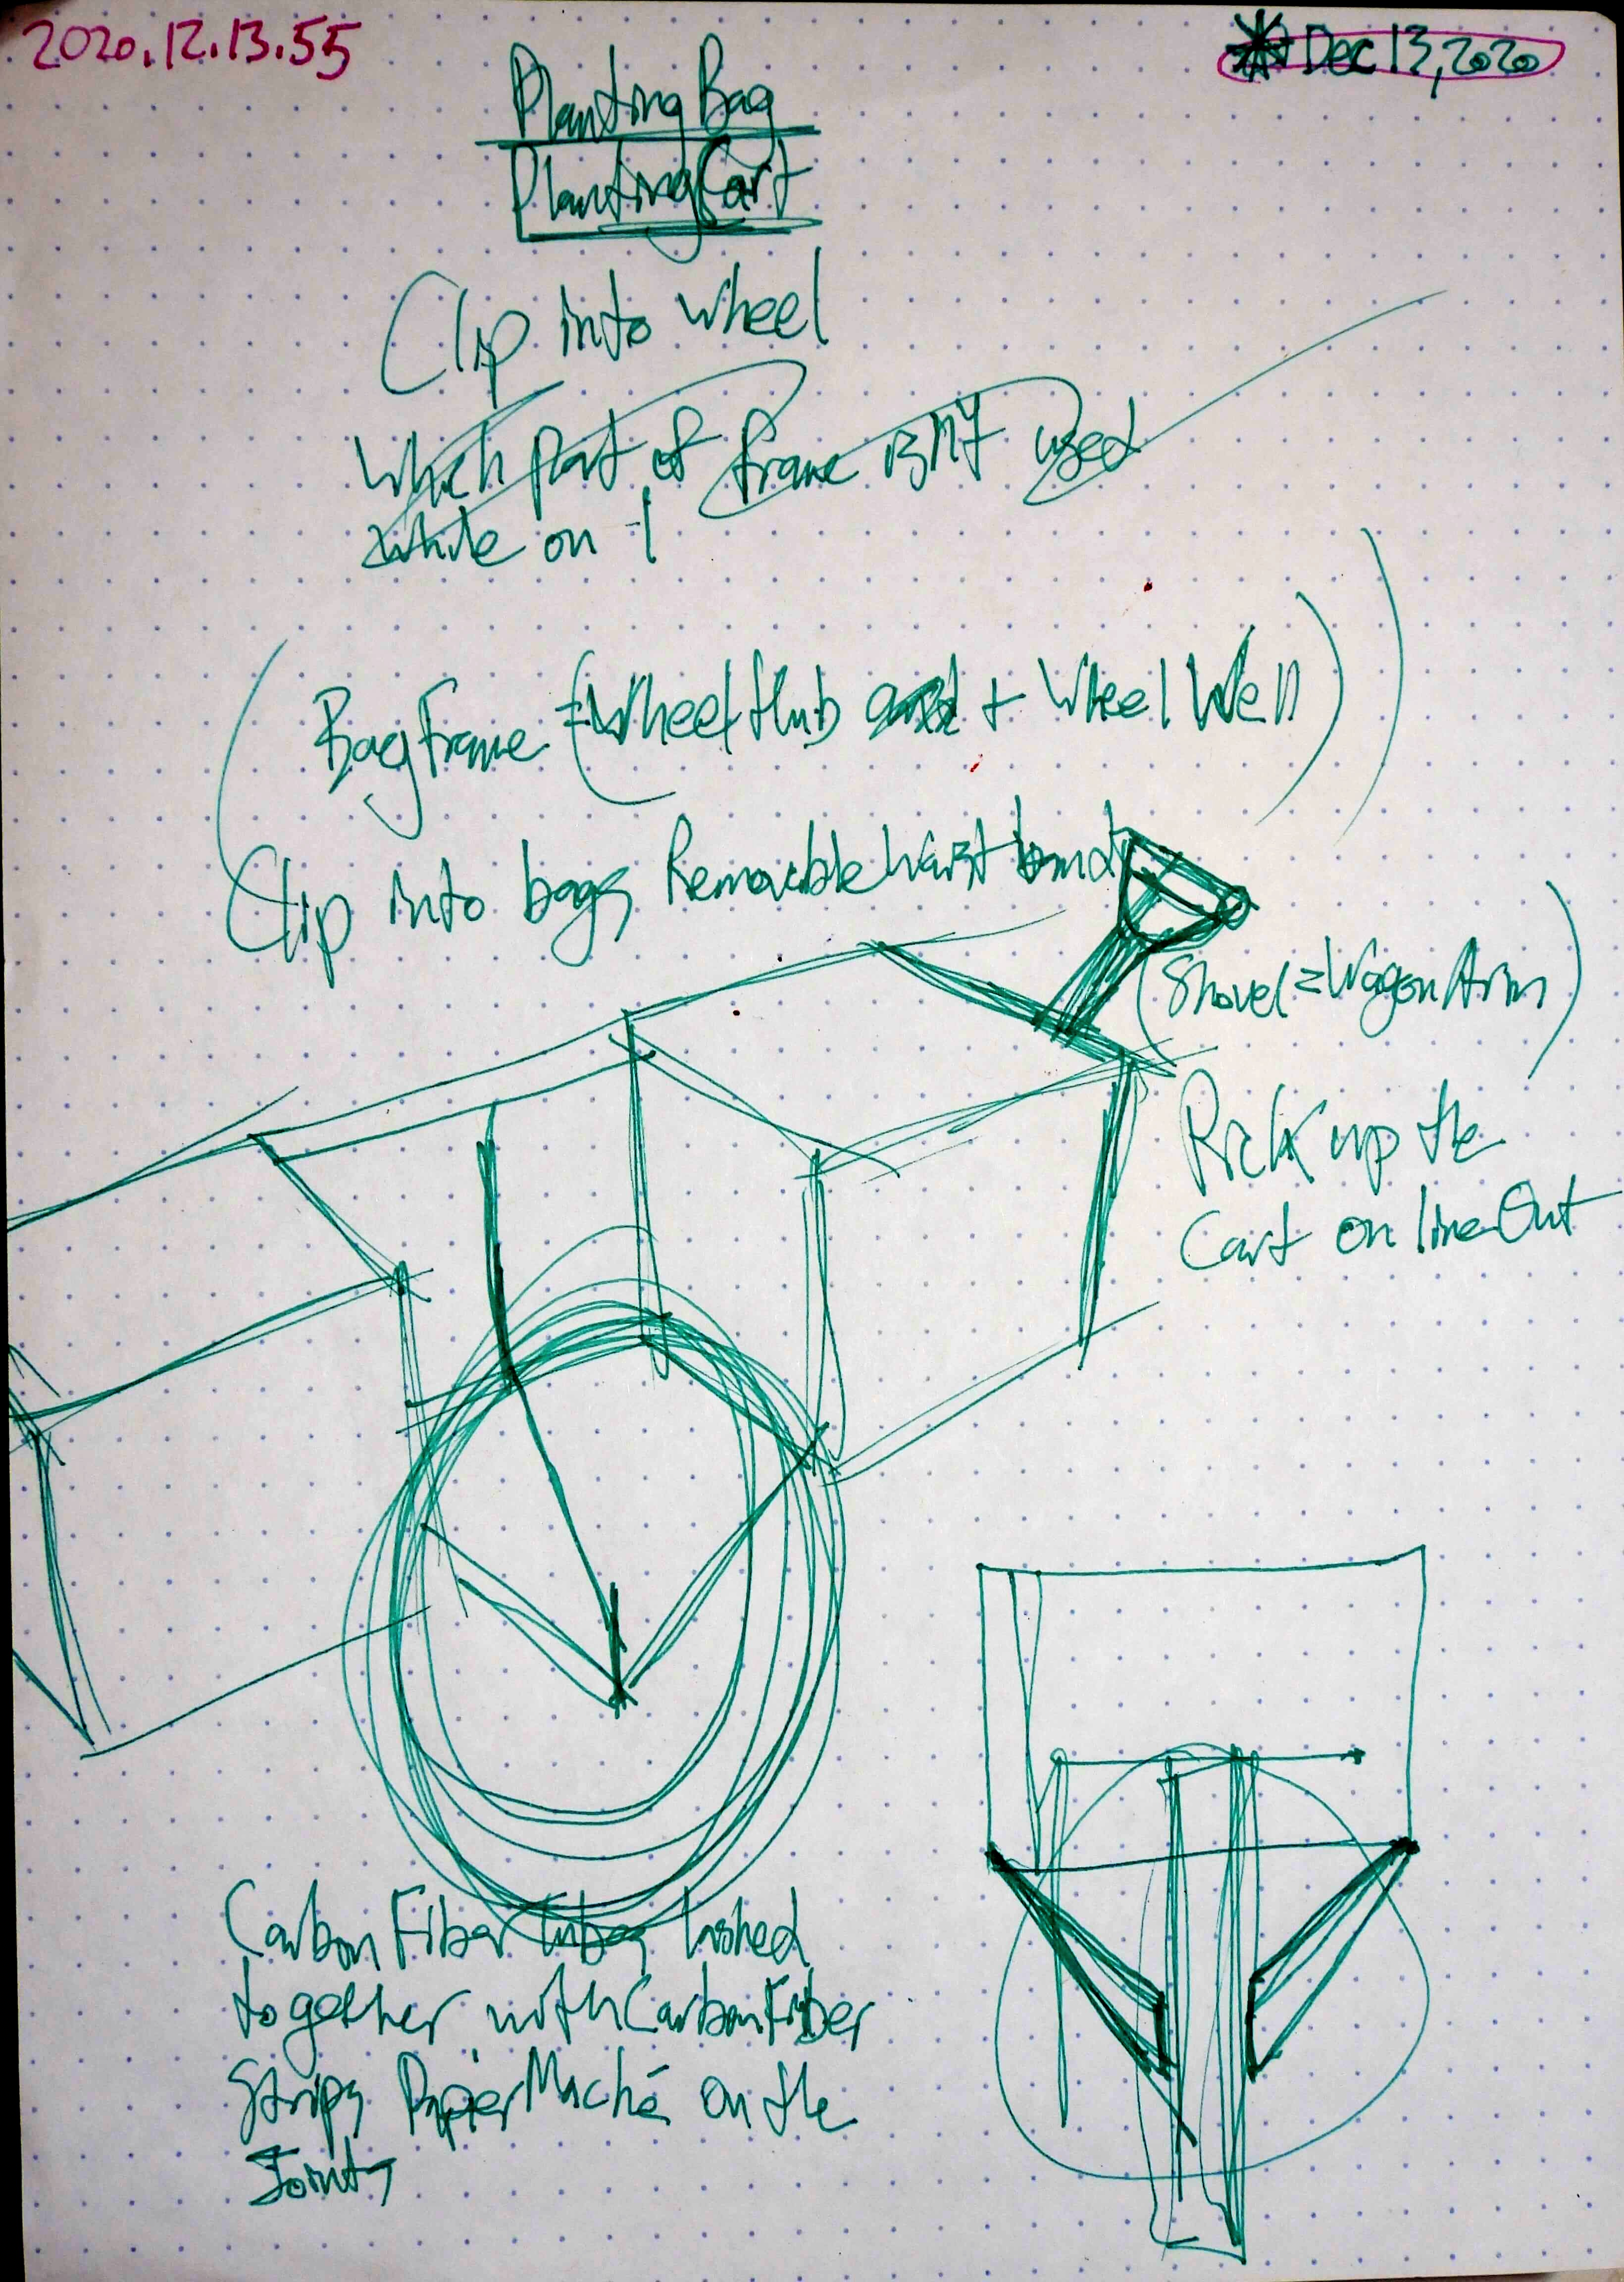 2020.12.13.55
Dec 13, 2020
Planting Bag
Planting Cart
Clip into wheel
which part of frame isn't used
while on
(Bag Frame = (Wheel Hub + Wheel Well))
Clip into bags Removable waist band
(Shovel = Wagon Arm)
Pick up the
Cart on line Out
Carbon Fiber tubes lashed
together with Carbon Fiber
Strips Papier Maché on the
Joints